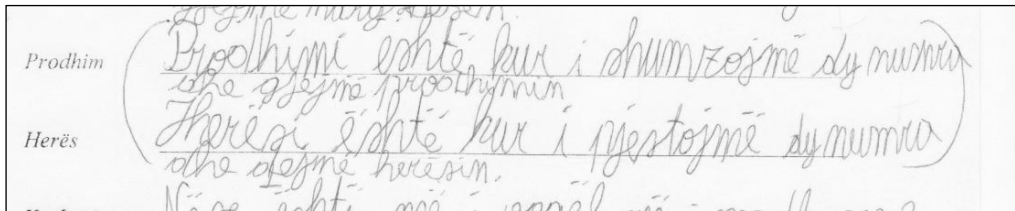 gjejmë
Prodhim Prodhimi eshtë kur i shumzojmë dy numra
dhe gjejmë prodhimin
Herës Herësi është kur i pjestojmë dy numra
dhe gjejmë herësin.
është një i një